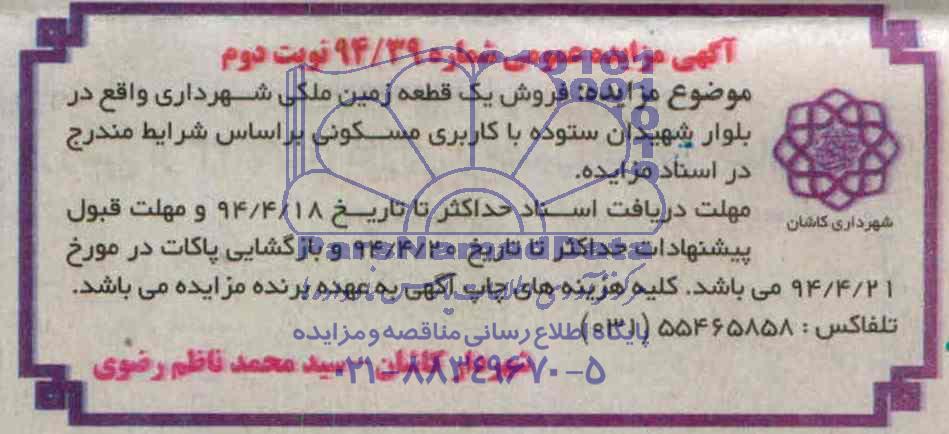 آگهی مزایده عمومی شماره ۹۴/۳۹ نوبت دوم
موضوع مزایده: فروش یک قطعه زمین ملکی شهرداری واقع در
بلوار شهیدان ستوده با کاربری مسکونی براساس شرایط مندرج
در اسناد مزایده.
مهلت دریافت اسناد حداکثر تا تاریخ ۹۴/۴/۱۸ و مهلت قبول
پیشنهادات حداکثر تا تاریخ ۹۴/۴/۲۰ و بازگشایی پاکات در مورخ
۹۴/۴/۲۱ می باشد. کلیه هزینه های چاپ آگهی به عهده برنده مزایده می باشد.
تلفاکس : ۵۵۴۶۵۸۵۸ (۰۳۱)
شهردار کاشان - سید محمد ناظم رضوی
شهرداری کاشان
پایگاه اطلاع رسانی مناقصه و مزایده
۰۲۱-۸۸۳۴۹۶۷۰-۵